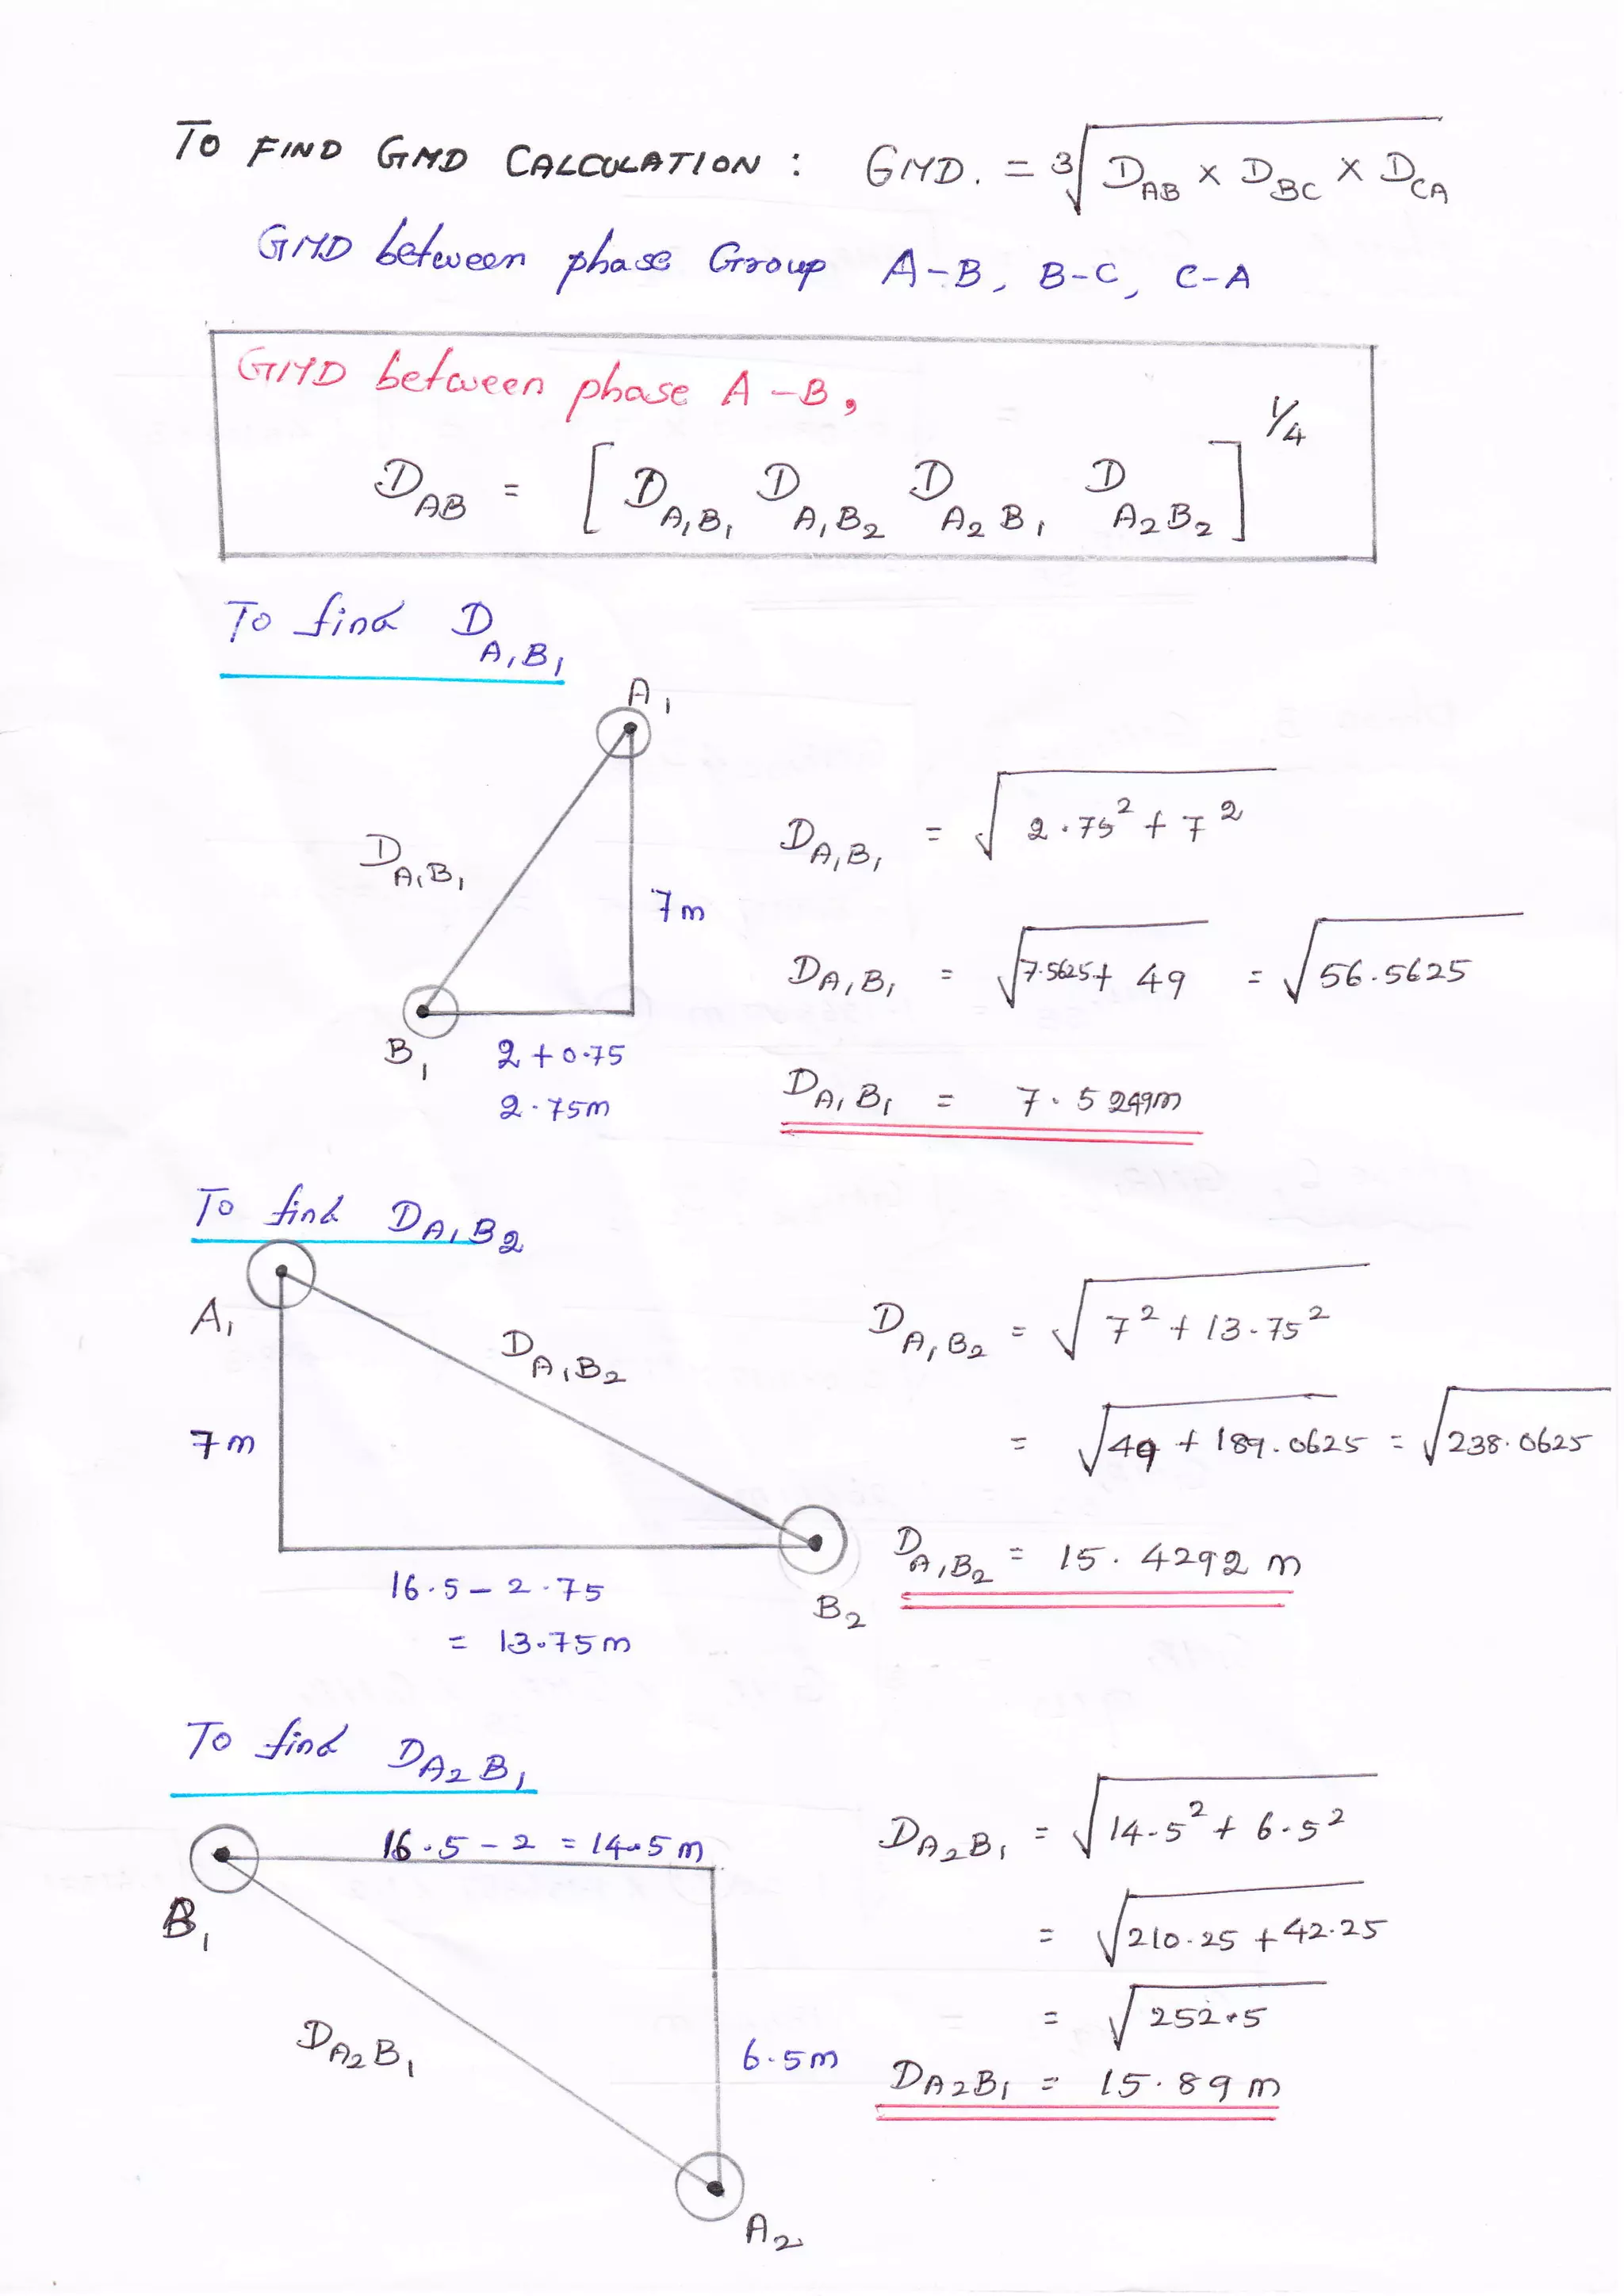 TO FIND GMD CALCULATION : GMD. = ³√(D_AB × D_BC × D_CA)
GMD between phase Group A-B, B-C, C-A
GMD between phase A-B,
D_AB = [D_A₁B₁ D_A₁B₂ D_A₂B₁ D_A₂B₂]^1/4
To find D_A₁B₁
A₁
D_A₁B₁
7m
B₁
2+0.75
2.75m
D_A₁B₁ = √(2.75² + 7²)
D_A₁B₁ = √(7.5625+ 49) = √56.5625
D_A₁B₁ = 7.5249m
To find D_A₁B₂
A₁
D_A₁B₂
7m
16.5 - 2.75
= 13.75m
B₂
D_A₁B₂ = √(7² + 13.75²)
= √(49 + 189.0625) = √238.0625
D_A₁B₂ = 15.4292 m
To find D_A₂B₁
16.5 - 2 = 14.5m
B₁
D_A₂B₁
6.5m
A₂
D_A₂B₁ = √(14.5² + 6.5²)
= √(210.25 + 42.25)
= √252.5
D_A₂B₁ = 15.89 m